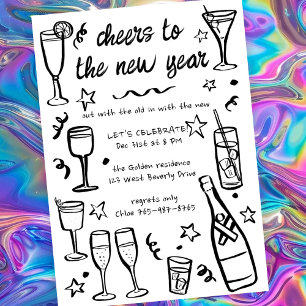 cheers to
the new year
out with the old in with the new
LET'S CELEBRATE!
Dec 31st at 8 PM
the Golden residence
123 West Beverly Drive
regrets only
Chloe 765-987-8765